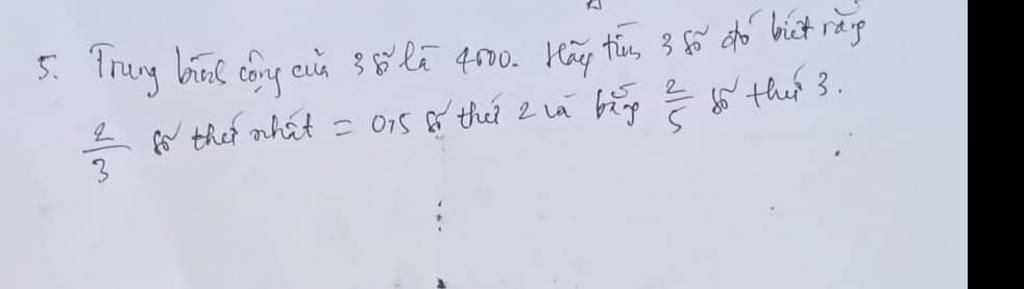 5. Trung bình cộng của 3 số là 4500. Hãy tìm 3 số đó biết rằng
2/3 số thứ nhất = 0,5 số thứ 2 và bằng 2/5 số thứ 3.